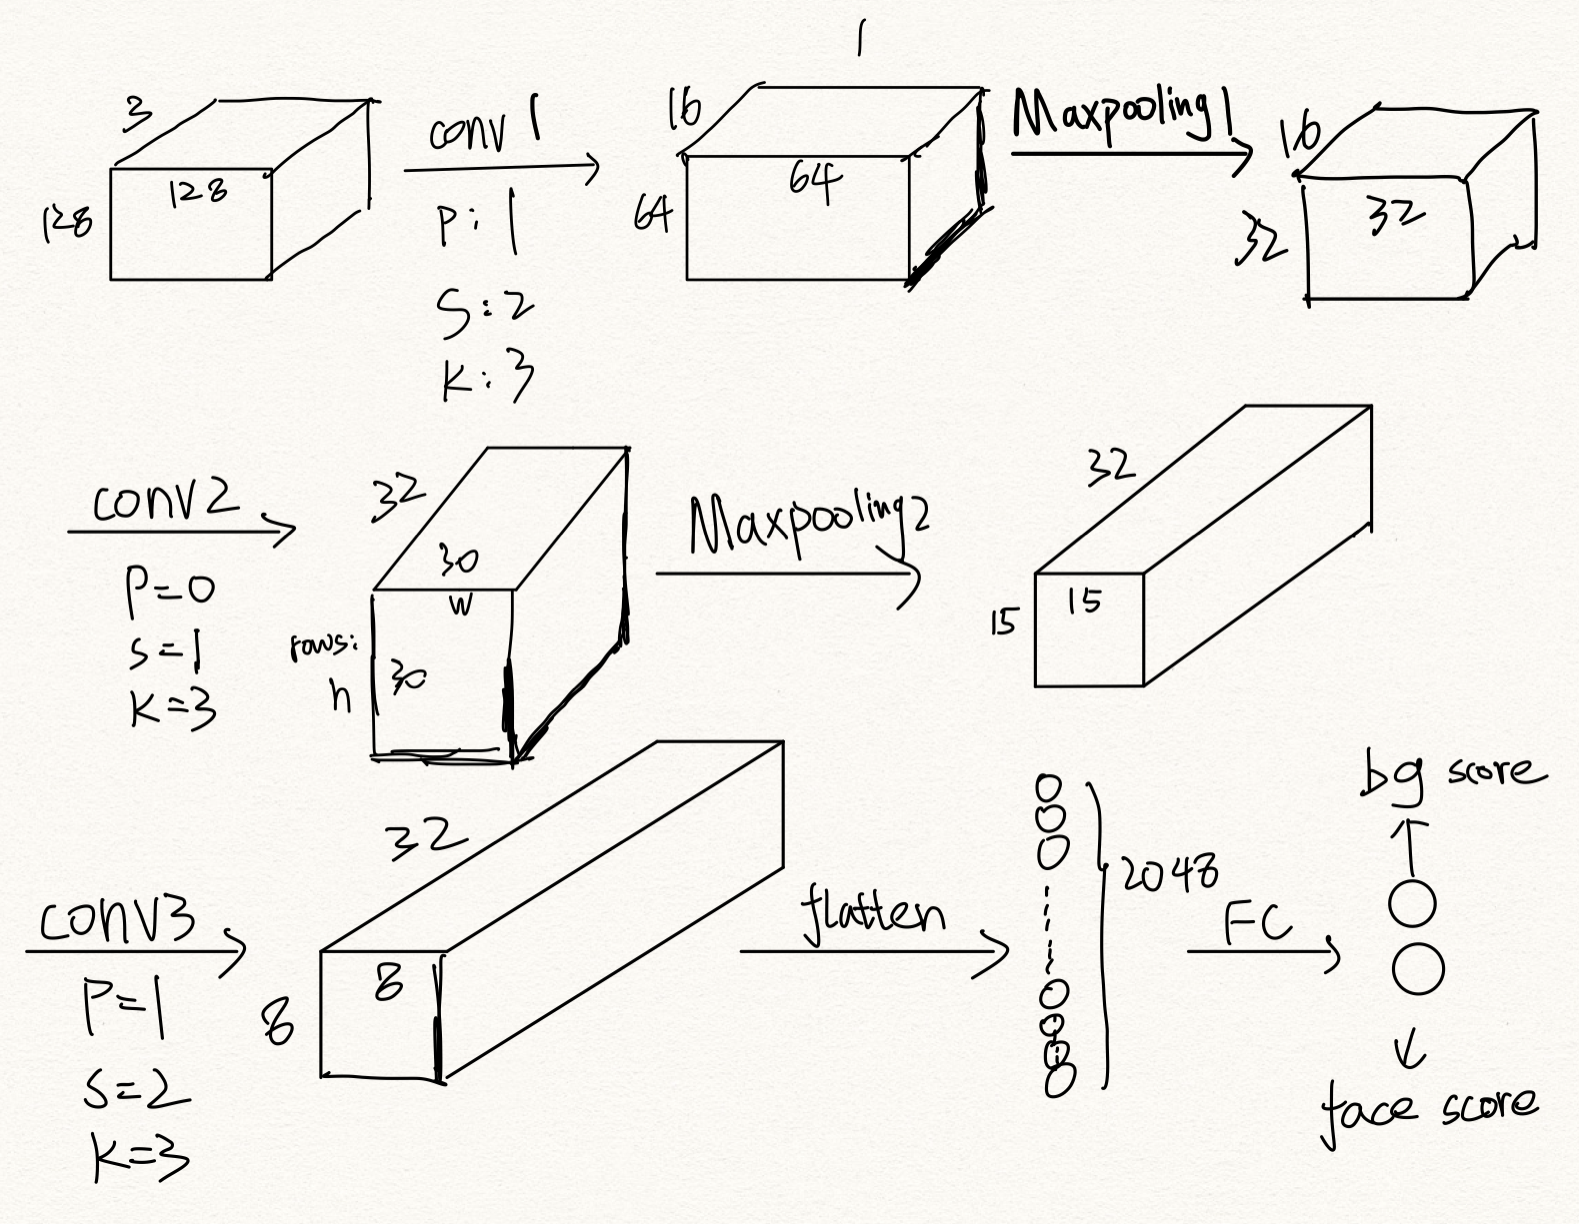 3
128
128
conv 1
P: 1
S: 2
K: 3
1
16
64
64
Maxpooling1
16
32
32
conv2
P=0
S=1
K=3
32
30
w
rows:
h
30
Maxpooling2
32
15
15
conv3
P=1
S=2
K=3
32
8
8
flatten
2048
FC
bg score
face score